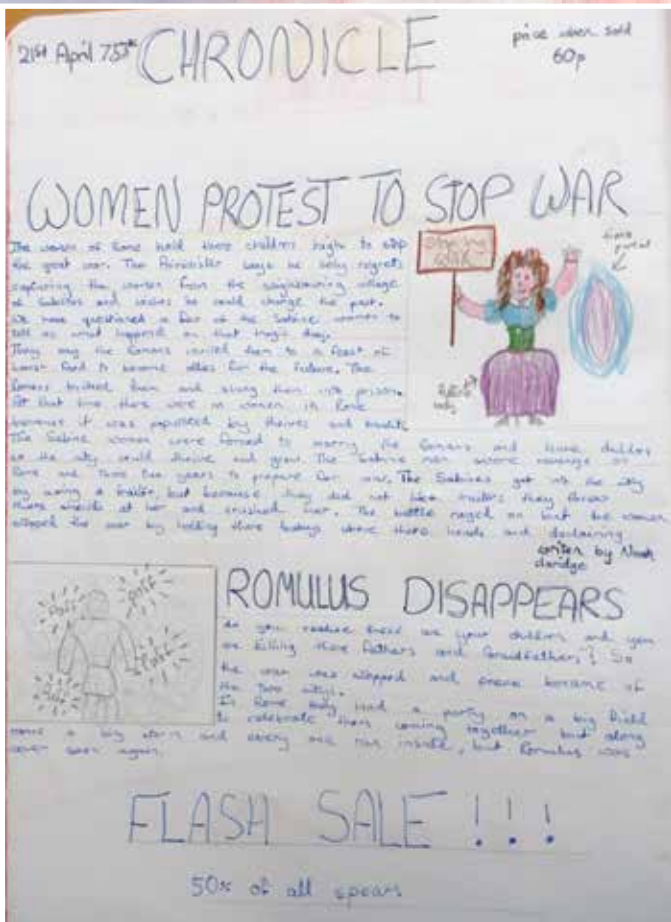 21st April 753
CHRONICLE
price when sold
60p
WOMEN PROTEST TO STOP WAR
The women of Rome held there children high to stop
the great war. The says he only regrets
capturing the women from the neighbouring village
of Sabines and wishes he could change the past.
We have questioned a few of the Sabine women to
tell us what happened on that tragic day.
They say the Romans invited them to a feast of
food to become allies for the future. The
Romans tricked them and them into prison.
At that time there were no women in Rome
because it was populised by thieves and
The Sabine women were forced to marry the Romans and have children
so the city could thrive and grow. The Sabine men swore revenge on
Rome and there two years to prepare for war. The Sabines got into the city
by using a traitor, but because they did not like traitors they threw
there shields at her and crushed her. The battle raged on but the women
stopped the war by holding there babys above there heads and declaring
writen by Noah
time portal
lady
ROMULUS DISAPPEARS
do you realise these are your children and you
are killing there fathers and Grandfathers? So
the war was stopped and peace became of
the two citys.
In Rome they had a party on a big field
to celebrate them coming together but along
came a big storm and every one ran inside, but Romulus was
never seen again.
Poff
Poff
FLASH SALE !!!
50% of all spears